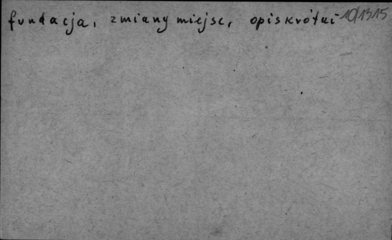 fundacja, zmiany miejsc, opis krótki 10/1315